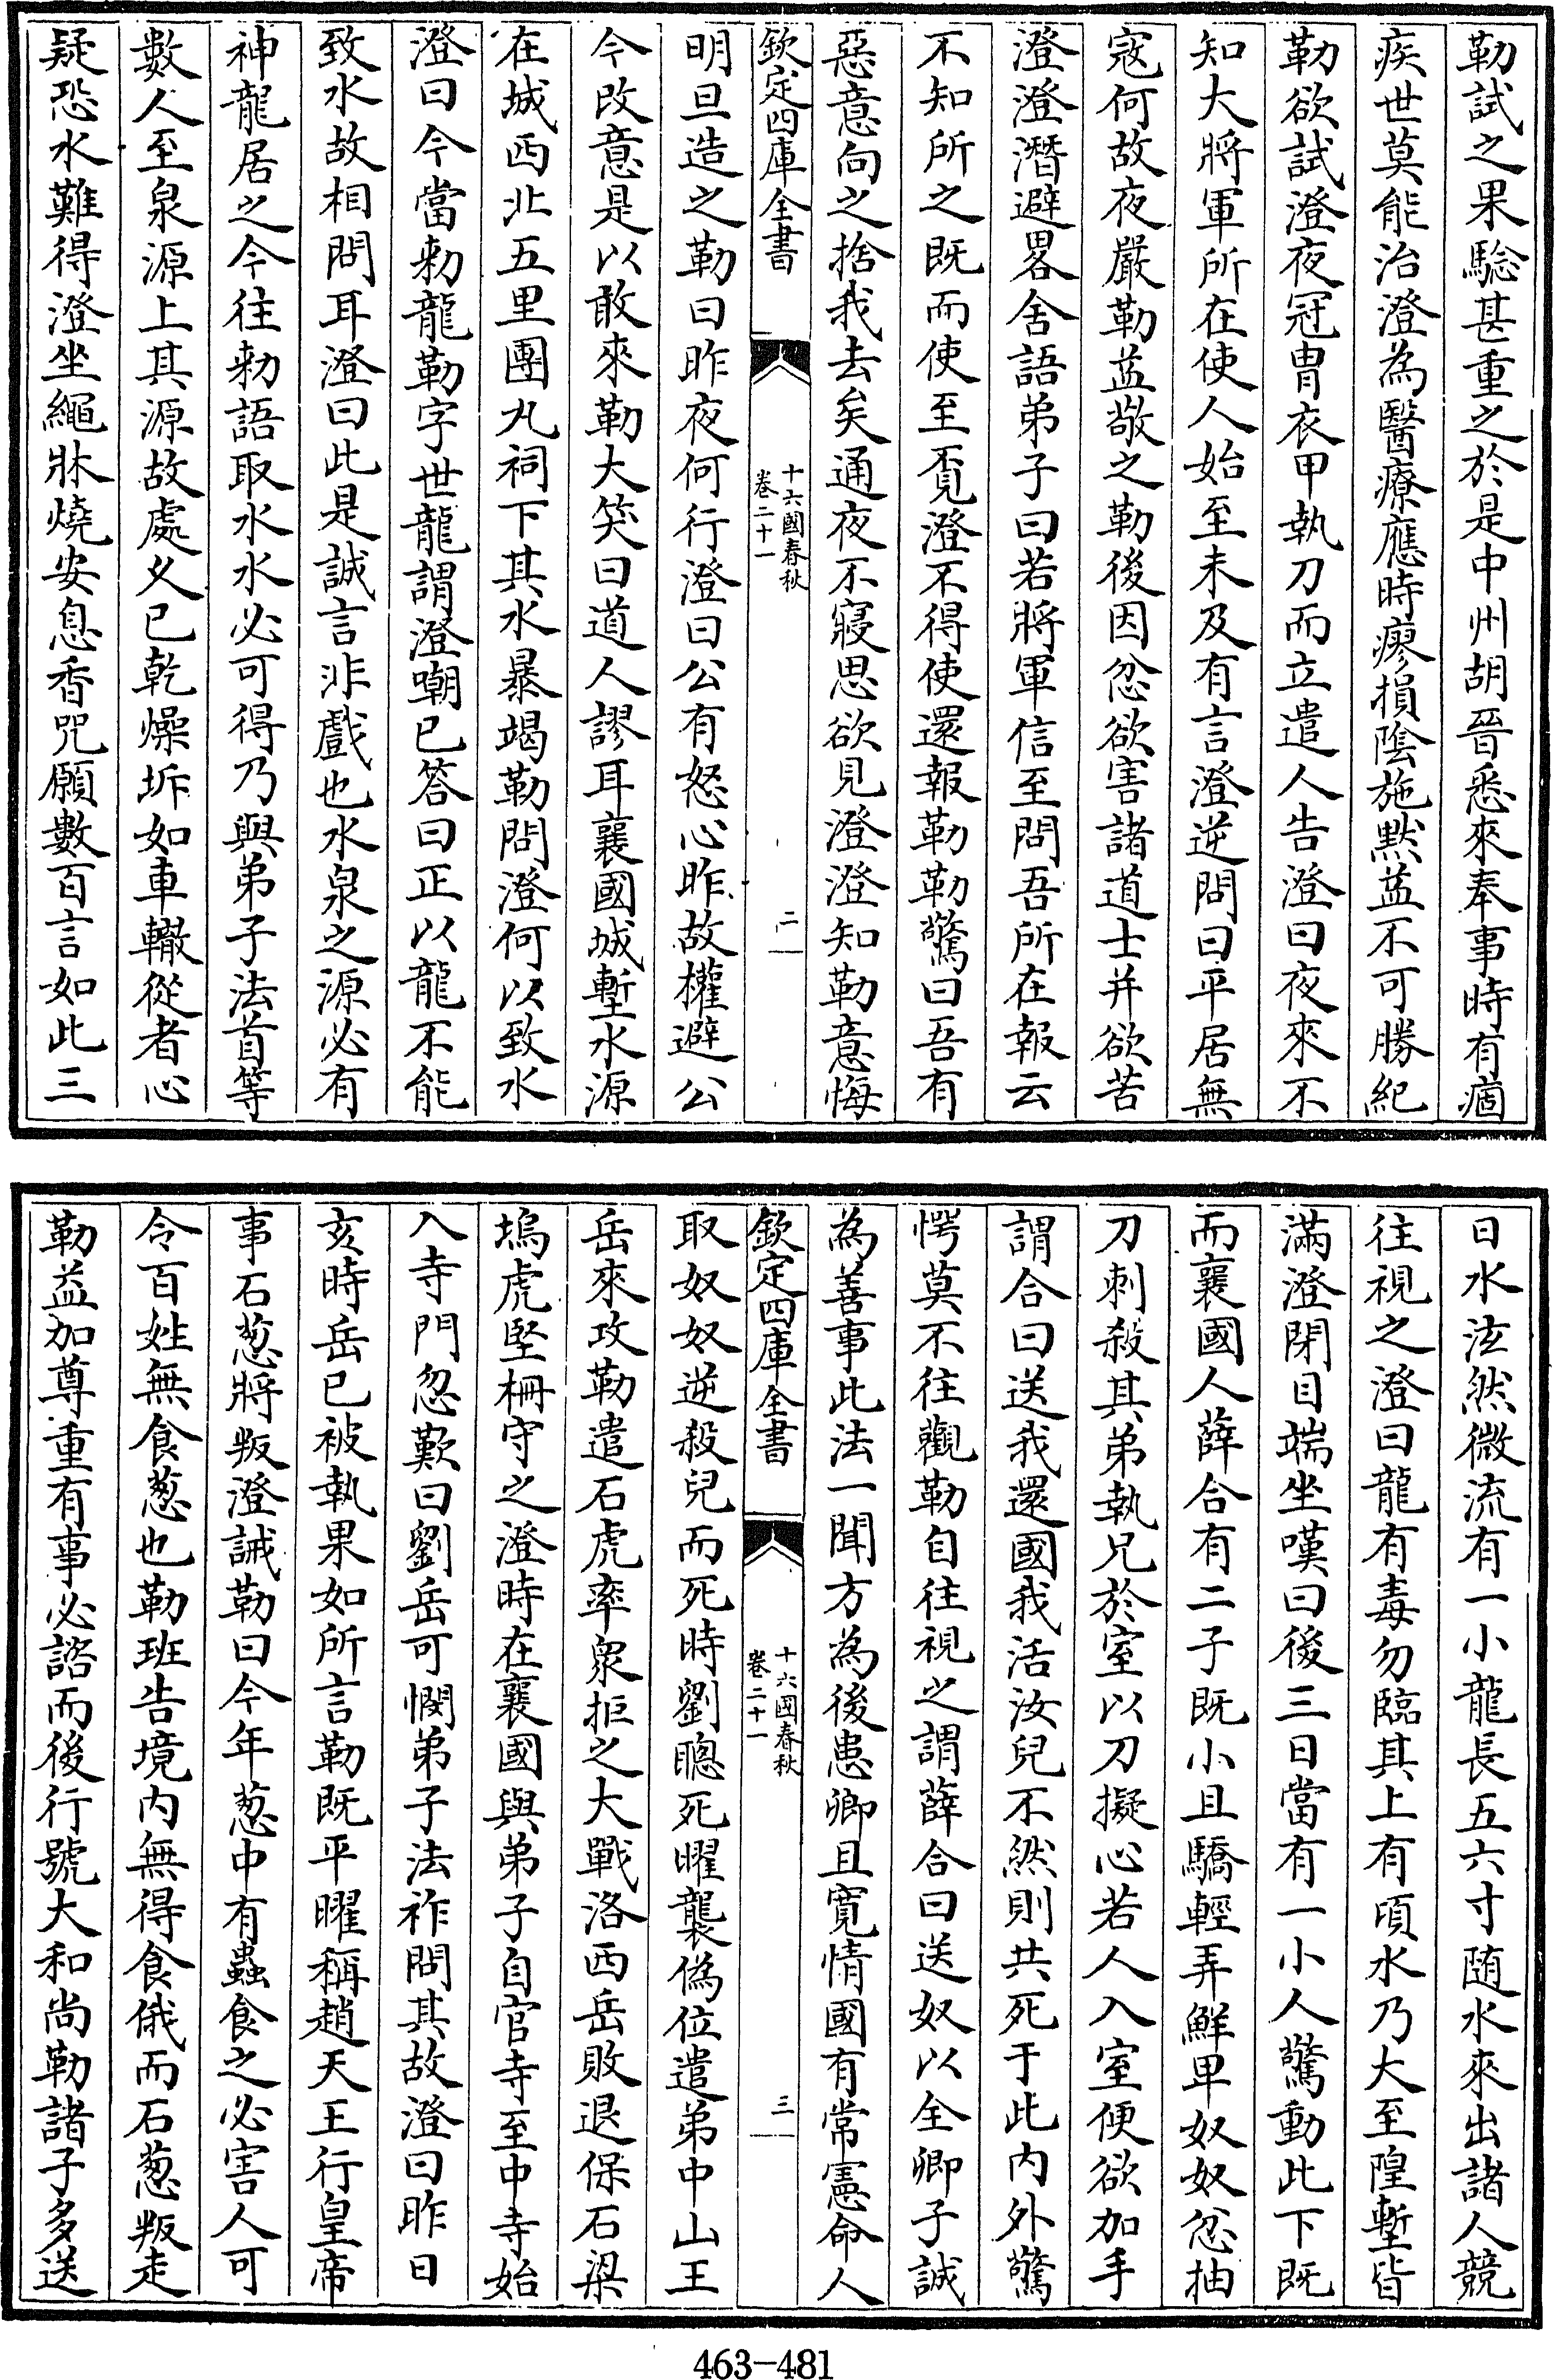 勒試之果騐甚重之於是中州胡晉悉來奉事時有痼
疾世莫能治澄為醫療應時瘳損隂施黙益不可勝紀
勒欲試澄夜冠胄衣甲執刀而立遣人告澄曰夜來不
知大將軍所在使人始至未及有言澄逆問曰平居無
宼何故夜嚴勒益敬之勒後因忿欲害諸道士并欲苦
澄澄潛避畧舍語弟子曰若將軍信至問吾所在報云
不知所之既而使至覔澄不得使還報勒勒驚曰吾有
惡意向之捨我去矣通夜不寢思欲見澄澄知勒意悔
欽定四庫全書
十六國春秋
卷二十一
二
明旦造之勒曰昨夜何行澄曰公有怒心昨故權避公
今改意是以敢來勒大笑曰道人謬耳襄國城塹水源
在城西北五里團丸祠下其水暴竭勒問澄何以致水
澄曰今當勑龍勒字世龍謂澄嘲已答曰正以龍不能
致水故相問耳澄曰此是誠言非戲也水泉之源必有
神龍居之今往勑語取水水必可得乃與弟子法首等
數人至泉源上其源故處久已乾燥坼如車轍從者心
疑恐水難得澄坐繩牀燒安息香咒願數百言如此三
日水泫然微流有一小龍長五六寸随水來出諸人競
往視之澄曰龍有毒勿臨其上有頃水乃大至隍塹皆
滿澄閉目端坐嘆曰後三日當有一小人驚動此下既
而襄國人薛合有二子既小且驕輕弄鮮卑奴奴忿抽
刀刺殺其弟執兄於室以刀擬心若人入室便欲加手
謂合曰送我還國我活汝兒不然則共死于此内外驚
愕莫不往觀勒自往視之謂薛合曰送奴以全卿子誠
為善事此法一聞方為後患卿且寛情國有常憲命人
欽定四庫全書
十六國春秋
卷二十一
三
取奴奴逆殺兒而死時劉聰死曜襲偽位遣弟中山王
岳來攻勒遣石虎率衆拒之大戰洛西岳敗退保石梁
塢虎堅柵守之澄時在襄國與弟子自官寺至中寺始
入寺門忽歎曰劉岳可憫弟子法祚問其故澄曰昨日
亥時岳已被執果如所言勒既平曜稱趙天王行皇帝
事石葱將叛澄誡勒曰今年葱中有蟲食之必害人可
令百姓無食葱也勒班告境内無得食俄而石葱叛走
勒益加尊重有事必諮而後行號大和尚勒諸子多送
463-481